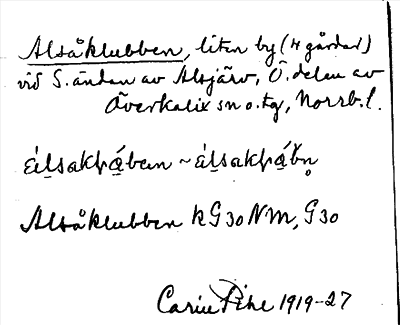 Alsåklubben, liten by (4 gårdar)
vid S. ändan av Alsjärv, Ö. delen av
Överkalix sn o. tg, Norrb. l.
Alsåklubben kG30NM, G30
Carin Pihl 1919-27